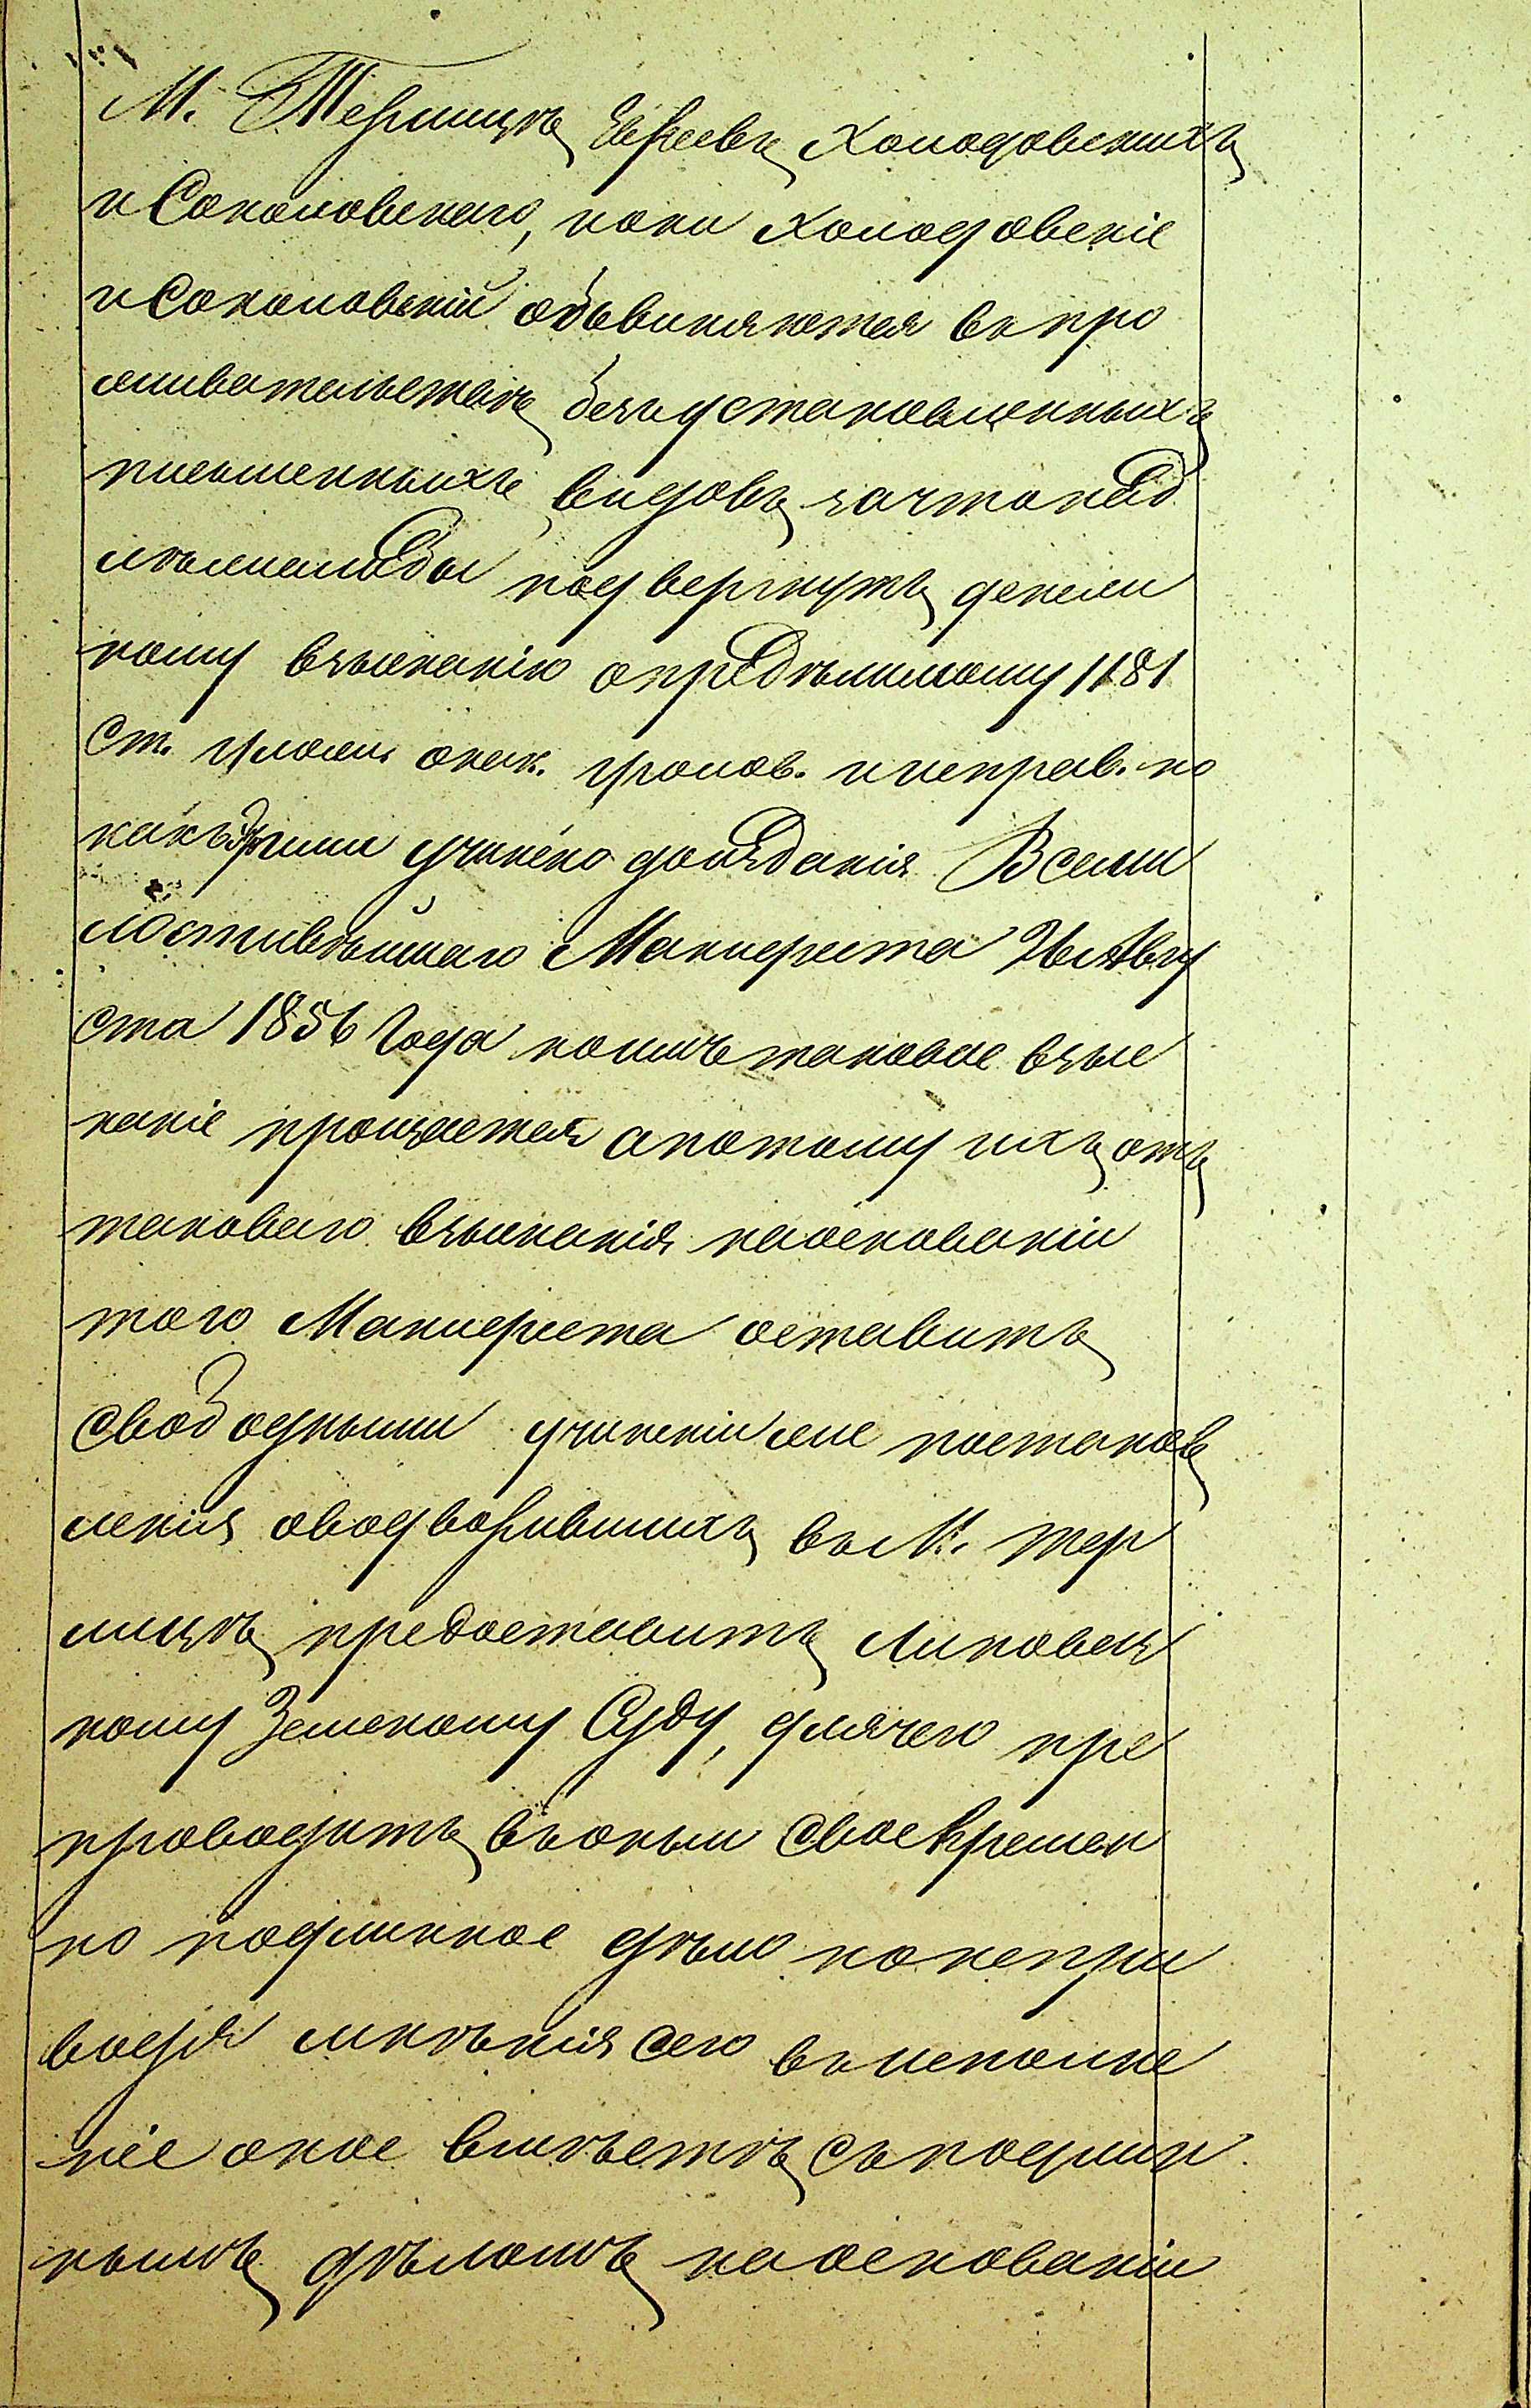 М. Терлицѣ Евреевъ Холодовскихъ
и Соколовскаго, кои Холодовскіе
и Соколовскій обвиняются въ про
живательствѣ безъ установленныхъ
письменныхъ видовъ за что слѣд
ловало бы подвергнуть денеж
ному взысканію опредѣлимому 1181
ст. улож. о нак. уголов. и исправ. но
какъ ими учинено до изданія Всеми
лостивѣйшаго Манифеста 26 Авгу
ста 1856 года коимъ таковое взыс
каніе прощается а потому ихъ отъ
таковаго взысканія на основаніи
того Манифеста оставить
свободными учиненіи же постанов
ленія о водворившихъ въ М. Тер
лицѣ предоставить Липовец
кому Земскому Суду, для чего пре
проводить въ оный своевремен
но подлинное дѣло но не при
водя мнѣнія сего въ исполне
ніе оное вмѣстѣ съ подлин
нымъ дѣломъ на основаніи